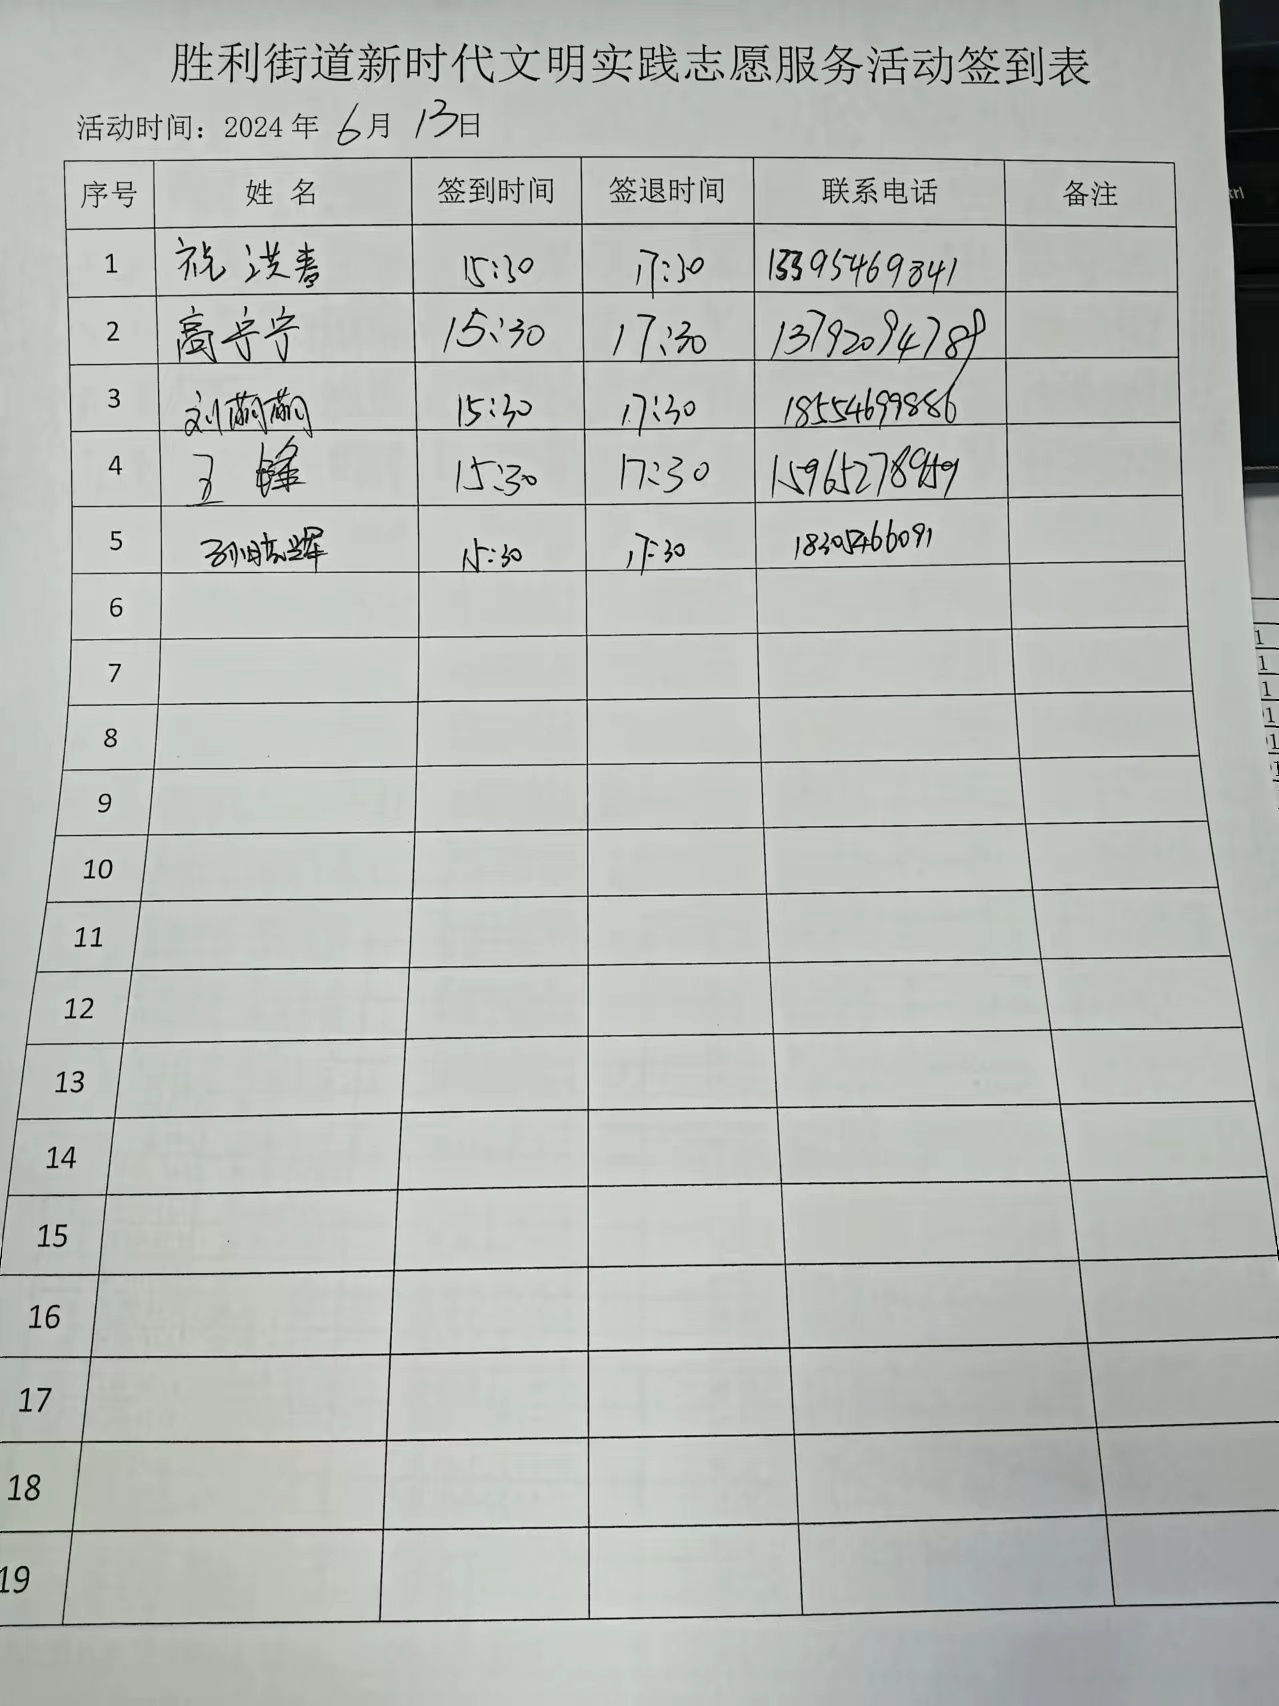 胜利街道新时代文明实践志愿服务活动签到表
活动时间：2024 年 6 月 13 日
序号 姓 名 签到时间 签退时间 联系电话 备注
1 祝洪春 15:30 17:30 13395469841
2 高宁宁 15:30 17:30 13792094789
3 刘萌萌 15:30 17:30 18554699886
4 王峰 15:30 17:30 15965278959
5 15:30 17:30 18305466091
6
7
8
9
10
11
12
13
14
15
16
17
18
19